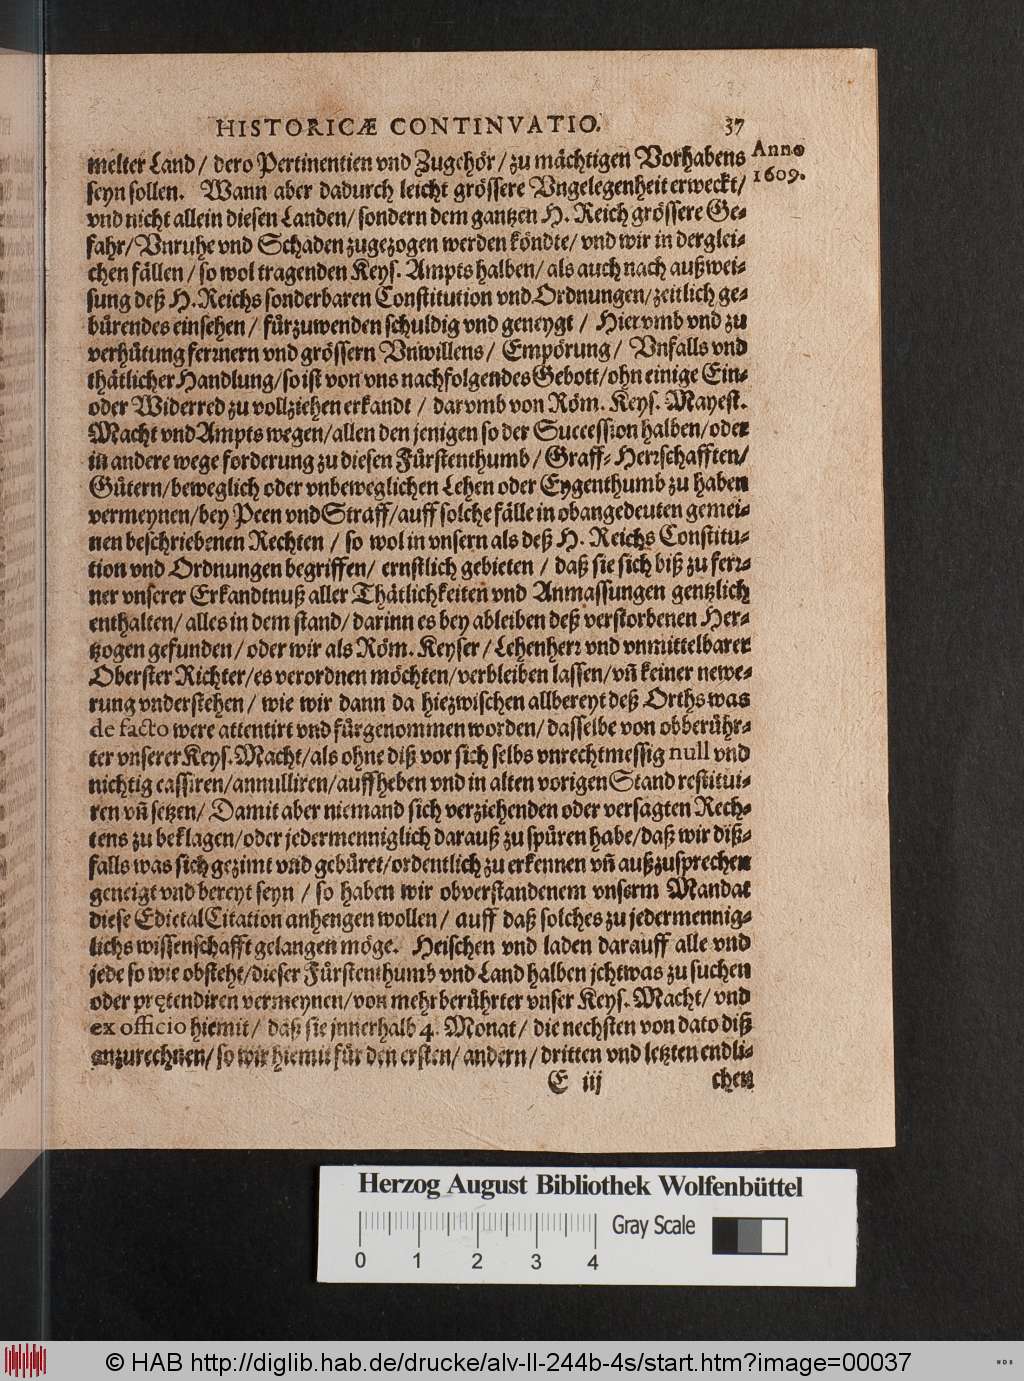 HISTORICÆ CONTINVATIO. 37
Anno
1609.
melter Land / dero Pertinentien vnd Zugehör / zu mächtigen Vorhabens
seyn sollen. Wann aber dadurch leicht grössere Vngelegenheit erweckt /
vnd nicht allein diesen Landen / sondern dem gantzen H. Reich grössere Ge-
fahr / Vnruhe vnd Schaden zugezogen werden köndte / vnd wir in derglei-
chen fällen / so wol tragenden Keys. Ampts halben / als auch nach außwei-
sung deß H. Reichs sonderbaren Constitution vnd Ordnungen / zeitlich ge-
bürendes einsehen / fürzuwenden schuldig vnd geneygt / Hiervmb vnd zu
verhütung fermern vnd grössern Vnwillens / Empörung / Vnfalls vnd
thätlicher Handlung / so ist von vns nachfolgendes Gebott / ohn einige Ein-
oder Widerred zu vollziehen erkandt / darvmb von Röm. Keys. Mayest.
Macht vnd Ampts wegen / allen den jenigen so der Succession halben / oder
in andere wege forderung zu diesen Fürstenthumb / Graff- Herrschafften /
Gütern / beweglich oder vnbeweglichen Lehen oder Eygenthumb zu haben
vermeynen / bey Peen vnd Straff / auff solche fälle in obangedeuten gemei-
nen beschriebenen Rechten / so wol in vnsern als deß H. Reichs Constitu-
tion vnd Ordnungen begriffen / ernstlich gebieten / daß sie sich biß zu ferr-
ner vnserer Erkandtnuß aller Thätlichkeiten vnd Anmassungen gentzlich
enthalten / alles in dem stand / darinn es bey ableiben deß verstorbenen Her-
tzogen gefunden / oder wir als Röm. Keyser / Lehenherr vnd vnmittelbarer
Oberster Richter / es verordnen möchten / verbleiben lassen / vñ keiner newe-
rung vnderstehen / wie wir dann da hiezwischen allbereyt deß Orths was
de facto were attentirt vnd fürgenommen worden / dasselbe von obberühr-
ter vnserer Keys. Macht / als ohne diß vor sich selbs vnrechtmessig null vnd
nichtig cassiren / annulliren / auffheben vnd in alten vorigen Stand restitui-
ren vñ setzen / Damit aber niemand sich verziehenden oder versagten Rech-
tens zu beklagen / oder jedermenniglich darauß zu spüren habe / daß wir diß-
falls was sich gezimt vnd gebüret / ordentlich zu erkennen vñ außzusprechen
geneigt vnd bereyt seyn / so haben wir obverstandenem vnserm Mandat
diese Edictal Citation anhengen wollen / auff daß solches zu jedermennig-
lichs wissenschafft gelangen möge. Heischen vnd laden darauff alle vnd
jede so wie obsteht / dieser Fürstenthumb vnd Land halben jchtwas zu suchen
oder prętendiren vermeynen / von mehrberührter vnser Keys. Macht / vnd
ex officio hiemit / daß sie jnnerhalb 4. Monat / die nechsten von dato diß
anzurechnen / so wir hiemit für den ersten / andern / dritten vnd letzten endli-
E iij chen
Herzog August Bibliothek Wolfenbüttel
Gray Scale
0 1 2 3 4
© HAB http://diglib.hab.de/drucke/alv-ll-244b-4s/start.htm?image=00037